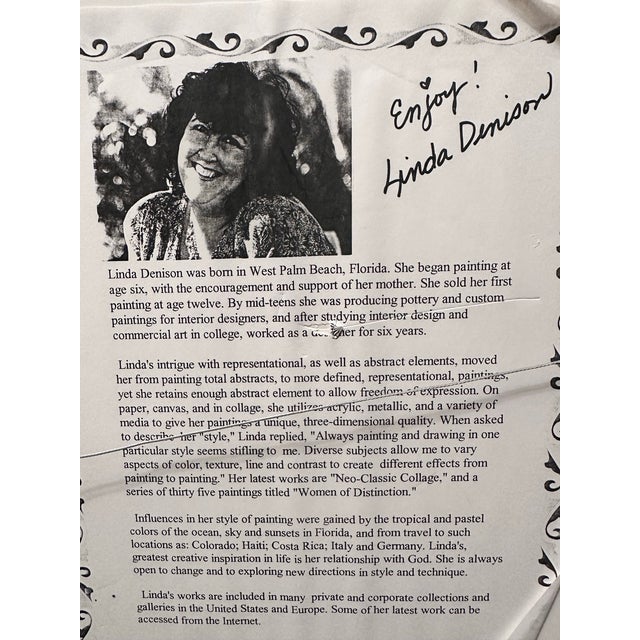 Enjoy!
Linda Denison
Linda Denison was born in West Palm Beach, Florida. She began painting at
age six, with the encouragement and support of her mother. She sold her first
painting at age twelve. By mid-teens she was producing pottery and custom
paintings for interior designers, and after studying interior design and
commercial art in college, worked as a for six years.
Linda's intrigue with representational, as well as abstract elements, moved
her from painting total abstracts, to more defined, representational, paintings,
yet she retains enough abstract element to allow freedom of expression. On
paper, canvas, and in collage, she utilizes acrylic, metallic, and a variety of
media to give her paintings a unique, three-dimensional quality. When asked
to describe her "style," Linda replied, "Always painting and drawing in one
particular style seems stifling to me. Diverse subjects allow me to vary
aspects of color, texture, line and contrast to create different effects from
painting to painting." Her latest works are "Neo-Classic Collage," and a
series of thirty five paintings titled "Women of Distinction."
Influences in her style of painting were gained by the tropical and pastel
colors of the ocean, sky and sunsets in Florida, and from travel to such
locations as: Colorado; Haiti; Costa Rica; Italy and Germany. Linda's,
greatest creative inspiration in life is her relationship with God. She is always
open to change and to exploring new directions in style and technique.
Linda's works are included in many private and corporate collections and
galleries in the United States and Europe. Some of her latest work can be
accessed from the Internet.